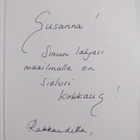 Susanna!
Sinun lahjasi
maailmalle on
sielusi
kirkkaus!
Rakkaudella,